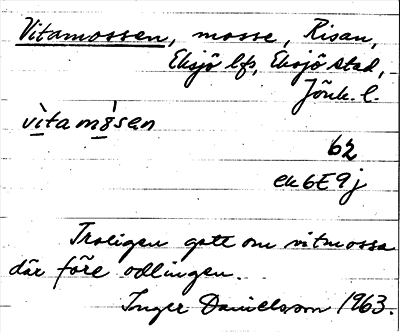 Vitamossen, mosse, Risan,
Eksjö lfs, Eksjö stad,
Jönk. l.
vìtamòsen
62
ek 6E9j
Troligen gott om vitmossa
där före odlingen.
Inger Danielsson 1963.